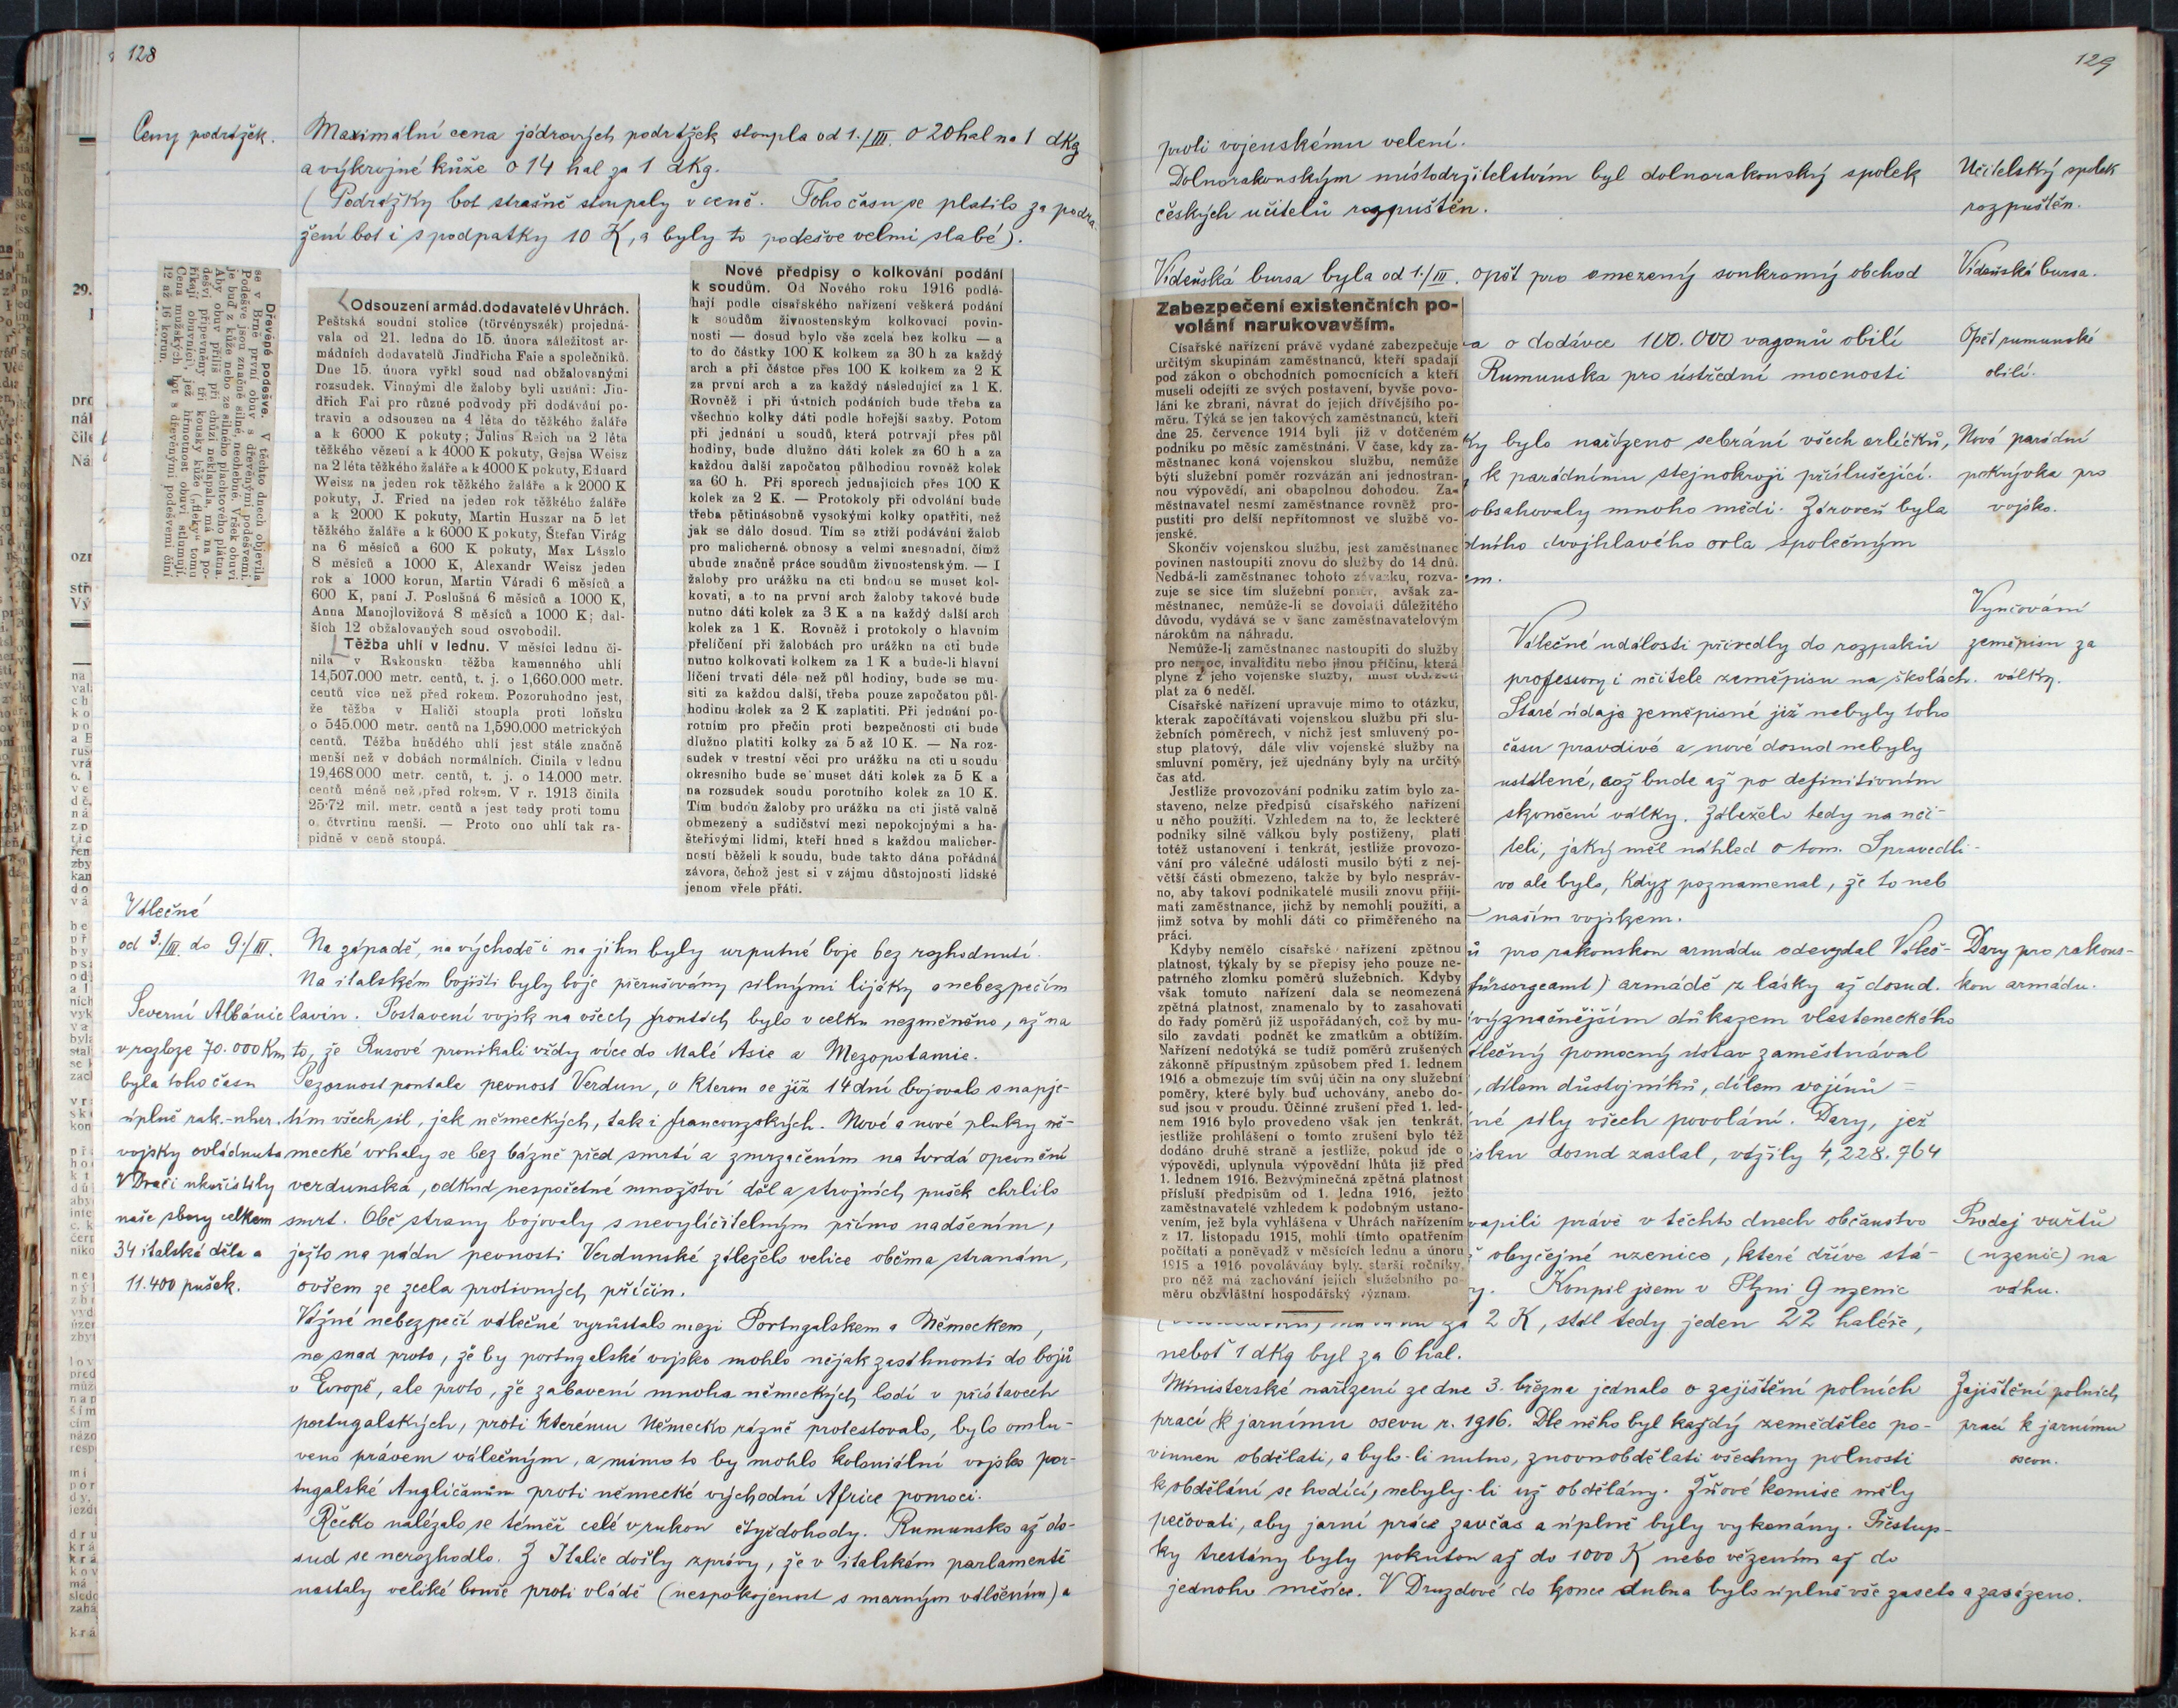 128
Ceny podrážek.
Maximální cena jádrových podrážek stoupla od 1./III. o 20 hal na 1 dKg
a výkrojné kůže o 14 hal za 1 dKg.
(Podrážky bot strašně stoupaly v ceně. Toho času se platilo za podra-
žení bot i s podpatky 10 K, a byly to podešve velmi slabé).
Dřevěné podešve. V těchto dnech objevila
se v Brně první obuv s dřevěnými podešvemi.
Podešve jsou značně silné, neohebné. Vršek obuvi
je buď z kůže nebo ze silného plachtového plátna.
Aby obuv příliš při chůzi neklapala, má na po-
dešvi připevněny tři kousky kůže („fleky“ tomu
říkají obuvníci), jež hřmotnost obuvi stlumují.
Cena mužských bot s dřevěnými podešvemi činí
12 až 16 korun.
Odsouzení armád. dodavatelé v Uhrách.
Peštská soudní stolice (törvényszék) projedná-
vala od 21. ledna do 15. února záležitost ar-
mádních dodavatelů Jindřicha Faie a společníků.
Dne 15. února vyřkl soud nad obžalovanými
rozsudek. Vinnými dle žaloby byli uznáni: Jin-
dřich Fai pro různé podvody při dodávání po-
travin a odsouzen na 4 léta do těžkého žaláře
a k 6000 K pokuty; Julius Reich na 2 léta
těžkého vězení a k 4000 K pokuty, Gejsa Weisz
na 2 léta těžkého žaláře a k 4000 K pokuty, Eduard
Weisz na jeden rok těžkého žaláře a k 2000 K
pokuty, J. Fried na jeden rok těžkého žaláře
a k 2000 K pokuty, Martin Huszar na 5 let
těžkého žaláře a k 6000 K pokuty, Štefan Virág
na 6 měsíců a 600 K pokuty, Max László
8 měsíců a 1000 K, Alexandr Weisz jeden
rok a 1000 korun, Martin Váradi 6 měsíců a
600 K, paní J. Poslušná 6 měsíců a 1000 K,
Anna Manojlovižová 8 měsíců a 1000 K; dal-
ších 12 obžalovaných soud osvobodil.
Těžba uhlí v lednu. V měsíci lednu či-
nila v Rakousku těžba kamenného uhlí
14,507.000 metr. centů, t. j. o 1,660.000 metr.
centů více než před rokem. Pozoruhodno jest,
že těžba v Haliči stoupla proti loňsku
o 545.000 metr. centů na 1,590.000 metrických
centů. Těžba hnědého uhlí jest stále značně
menší než v dobách normálních. Činila v lednu
19,468 000 metr. centů, t. j. o 14.000 metr.
centů méně než před rokem. V r. 1913 činila
25·72 mil. metr. centů a jest tedy proti tomu
o čtvrtinu menší. — Proto ono uhlí tak ra-
pidně v ceně stoupá.
Nové předpisy o kolkování podání
k soudům. Od Nového roku 1916 podlé-
hají podle císařského nařízení veškerá podání
k soudům živnostenským kolkovací povin-
nosti — dosud bylo vše zcela bez kolku — a
to do částky 100 K kolkem za 30 h za každý
arch a při částce přes 100 K kolkem za 2 K
za první arch a za každý následující za 1 K.
Rovněž i při ústních podáních bude třeba za
všechno kolky dáti podle hořejší sazby. Potom
při jednání u soudů, která potrvají přes půl
hodiny, bude dlužno dáti kolek za 60 h a za
každou další započatou půlhodinu rovněž kolek
za 60 h. Při sporech jednajících přes 100 K
kolek za 2 K. — Protokoly při odvolání bude
třeba pětinásobně vysokými kolky opatřiti, než
jak se dálo dosud. Tím se ztíží podávání žalob
pro malicherné obnosy a velmi znesnadní, čímž
ubude značně práce soudům živnostenským. — I
žaloby pro urážku na cti budou se muset kol-
kovati, a to na první arch žaloby takové bude
nutno dáti kolek za 3 K a na každý další arch
kolek za 1 K. Rovněž i protokoly o hlavním
přelíčení při žalobách pro urážku na cti bude
nutno kolkovati kolkem za 1 K a bude-li hlavní
líčení trvati déle než půl hodiny, bude se mu-
siti za každou další, třeba pouze započatou půl-
hodinu kolek za 2 K zaplatiti. Při jednání po-
rotním pro přečin proti bezpečnosti cti bude
dlužno platiti kolky za 5 až 10 K. — Na roz-
sudek v trestní věci pro urážku na cti u soudu
okresního bude se muset dáti kolek za 5 K a
na rozsudek soudu porotního kolek za 10 K.
Tím budou žaloby pro urážku na cti jistě valně
obmezeny a sudičství mezi nepokojnými a ha-
šteřivými lidmi, kteří hned s každou malicher-
ností běželi k soudu, bude takto dána pořádná
závora, čehož jest si v zájmu důstojnosti lidské
jenom vřele přáti.
Válečné
od 3./III. do 9./III.
Na západě, na východě i na jihu byly urputné boje bez rozhodnutí.
Na italském bojišti byly boje přerušovány silnými lijáky a nebezpečím
lavin. Postavení vojsk na všech frontách bylo v celku nezměněno, až na
to, že Rusové pronikali vždy více do Malé Asie a Mezopotamie.
Pozornost poutala pevnost Verdun, o kterou se již 14 dní bojovalo s napje-
tím všech sil, jak německých, tak i francouzských. Nové a nové pluky ně-
mecké vrhaly se bez bázně před smrtí a zmrzačením na tvrdá opevnění
verdunská, odkud nespočetné množství děl a strojních pušek chrlilo
smrt. Obě strany bojovaly s nevylíčitelným přímo nadšením,
ježto na pádu pevnosti Verdunské záleželo velice oběma stranám,
ovšem ze zcela protivných příčin.
Severní Albánie
v rozloze 70.000 Km
byla toho času
úplně rak.-uher.
vojsky ovládnuta
V Drači ukořistily
naše sbory celkem
34 italská děla a
11.400 pušek.
Vážné nebezpečí válečné vyrůstalo mezi Portugalskem a Německem,
ne snad proto, že by portugalské vojsko mohlo nějak zasáhnouti do bojů
v Evropě, ale proto, že zabavení mnoha německých lodí v přístavech
portugalských, proti kterému Německo rázně protestovalo, bylo omlu-
veno právem válečným, a mimo to by mohlo koloniální vojsko por-
tugalské Angličanům proti německé východní Africe pomoci.
Řecko nalézalo se téměř celé v rukou čtyřdohody. Rumunsko až do-
sud se nerozhodlo. Z Italie došly zprávy, že v italském parlamentě
nastaly veliké bouře proti vládě (nespokojenost s marným válčením) a
129
proti vojenskému velení.
Dolnorakouským místodržitelstvím byl dolnorakouský spolek
českých učitelů rozpuštěn.
Učitelský spolek
rozpuštěn.
Vídeňská bursa byla od 1./III. opět pro omezený soukromý obchod
Vídeňská bursa.
Zabezpečení existenčních po-
volání narukovavším.
Císařské nařízení právě vydané zabezpečuje
určitým skupinám zaměstnanců, kteří spadají
pod zákon o obchodních pomocnících a kteří
museli odejíti ze svých postavení, byvše povo-
láni ke zbrani, návrat do jejich dřívějšího po-
měru. Týká se jen takových zaměstnanců, kteří
dne 25. července 1914 byli již v dotčeném
podniku po měsíc zaměstnáni. V čase, kdy za-
městnanec koná vojenskou službu, nemůže
býti služební poměr rozvázán ani jednostran-
nou výpovědí, ani obapolnou dohodou. Za-
městnavatel nesmí zaměstnance rovněž pro-
pustiti pro delší nepřítomnost ve službě vo-
jenské.
Skončiv vojenskou službu, jest zaměstnanec
povinen nastoupiti znovu do služby do 14 dnů.
Nedbá-li zaměstnanec tohoto závazku, rozva-
zuje se sice tím služební poměr, avšak za-
městnanec, nemůže-li se dovolati důležitého
důvodu, vydává se v šanc zaměstnavatelovým
nárokům na náhradu.
Nemůže-li zaměstnanec nastoupiti do služby
pro nemoc, invaliditu nebo jinou příčinu, která
plyne z jeho vojenské služby, musí obdržeti
plat za 6 neděl.
Císařské nařízení upravuje mimo to otázku,
kterak započítávati vojenskou službu při slu-
žebních poměrech, v nichž jest smluvený po-
stup platový, dále vliv vojenské služby na
smluvní poměry, jež ujednány byly na určitý
čas atd.
Jestliže provozování podniku zatím bylo za-
staveno, nelze předpisů císařského nařízení
u něho použíti. Vzhledem na to, že leckteré
podniky silně válkou byly postiženy, platí
totéž ustanovení i tenkrát, jestliže provozo-
vání pro válečné události musilo býti z nej-
větší části obmezeno, takže by bylo nespráv-
no, aby takoví podnikatelé musili znovu přijí-
mati zaměstnance, jichž by nemohli použíti, a
jimž sotva by mohli dáti co přiměřeného na
práci.
Kdyby nemělo císařské nařízení zpětnou
platnost, týkaly by se přepisy jeho pouze ne-
patrného zlomku poměrů služebních. Kdyby
však tomuto nařízení dala se neomezená
zpětná platnost, znamenalo by to zasahovati
do řady poměrů již uspořádaných, což by mu-
silo zavdati podnět ke zmatkům a obtížím.
Nařízení nedotýká se tudíž poměrů zrušených
zákonně přípustným způsobem před 1. lednem
1916 a obmezuje tím svůj účin na ony služební
poměry, které byly buď uchovány, anebo do-
sud jsou v proudu. Účinné zrušení před 1. led-
nem 1916 bylo provedeno však jen tenkrát,
jestliže prohlášení o tomto zrušení bylo též
dodáno druhé straně a jestliže, pokud jde o
výpovědi, uplynula výpovědní lhůta již před
1. lednem 1916. Bezvýminečná zpětná platnost
přísluší předpisům od 1. ledna 1916, ježto
zaměstnavatelé vzhledem k podobným ustano-
vením, jež byla vyhlášena v Uhrách nařízením
z 17. listopadu 1915, mohli tímto opatřením
počítati a poněvadž v měsících lednu a únoru
1915 a 1916 povolávány byly starší ročníky,
pro něž má zachování jejich služebního po-
měru obzvláštní hospodářský význam.
a o dodávce 100.000 vagonů obilí
Rumunska pro ústřední mocnosti
Opět rumunské
obilí.
ky bylo nařízeno sebrání všech orlíčků,
k parádnímu stejnokroji příslušející.
obsahovaly mnoho mědi. Zároveň byla
dvojhlavého orla společným
em.
Nová parádní
pokrývka pro
vojsko.
Válečné události přivedly do rozpaků
professory i učitele zeměpisu na školách.
Staré údaje zeměpisné již nebyly toho
času pravdivé a nové dosud nebyly
ustálené, což bude až po definitivním
skončení války. Záleželo tedy na uči-
teli, jaký měl náhled o tom. Spravedli-
vo ale bylo, když poznamenal, že to neb
naším vojskem.
Vyučování
zeměpisu za
války.
ů pro rakouskou armádu odevzdal Váleč-
fürsorgeamt) armádě z lásky až dosud.
význačnějším důkazem vlasteneckého
álečný pomocný ústav zaměstnával
, dílem důstojníků, dílem vojínů =
né síly všech povolání. Dary, jež
isku dosud zaslal, vážily 4,228.964
Dary pro rakous-
kou armádu.
vapili právě v těchto dnech občanstvo
obyčejné uzenice, které dříve stá-
y. Koupil jsem v Plzni 9 uzenic
2 K, stál tedy jeden 22 haléře,
neboť 1 dKg byl za 6 hal.
Prodej vuřtů
(uzenic) na
váhu.
Ministerské nařízení ze dne 3. března jednalo o zajištění polních
prací k jarnímu osevu r. 1916. Dle něho byl každý zemědělec po-
vinnen obdělati, a bylo-li nutno, znovuobdělati všechny polnosti
k obdělání se hodící, nebyly-li už obdělány. Žňové komise měly
pečovati, aby jarní práce zavčas a úplně byly vykonány. Přestup-
ky trestány byly pokutou až do 1000 K nebo vězením až do
jednoho měsíce. V Druzdové do konce dubna bylo úplně vše zaseto a zasázeno.
Zajištění polních
prací k jarnímu
osevu.